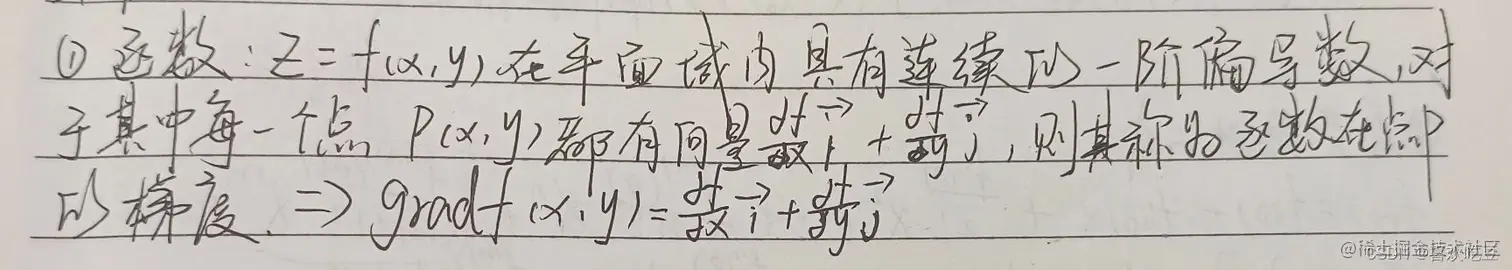 ① 函数:Z=f(x,y)在平面域内具有连续的一阶偏导数,对
于其中每一个点 P(x,y)都有向量 ∂f/∂x i⃗ + ∂f/∂y j⃗,则其称为函数在点P
的梯度. ⇒ gradf(x,y)=∂f/∂x i⃗ + ∂f/∂y j⃗
@稀土掘金技术社区